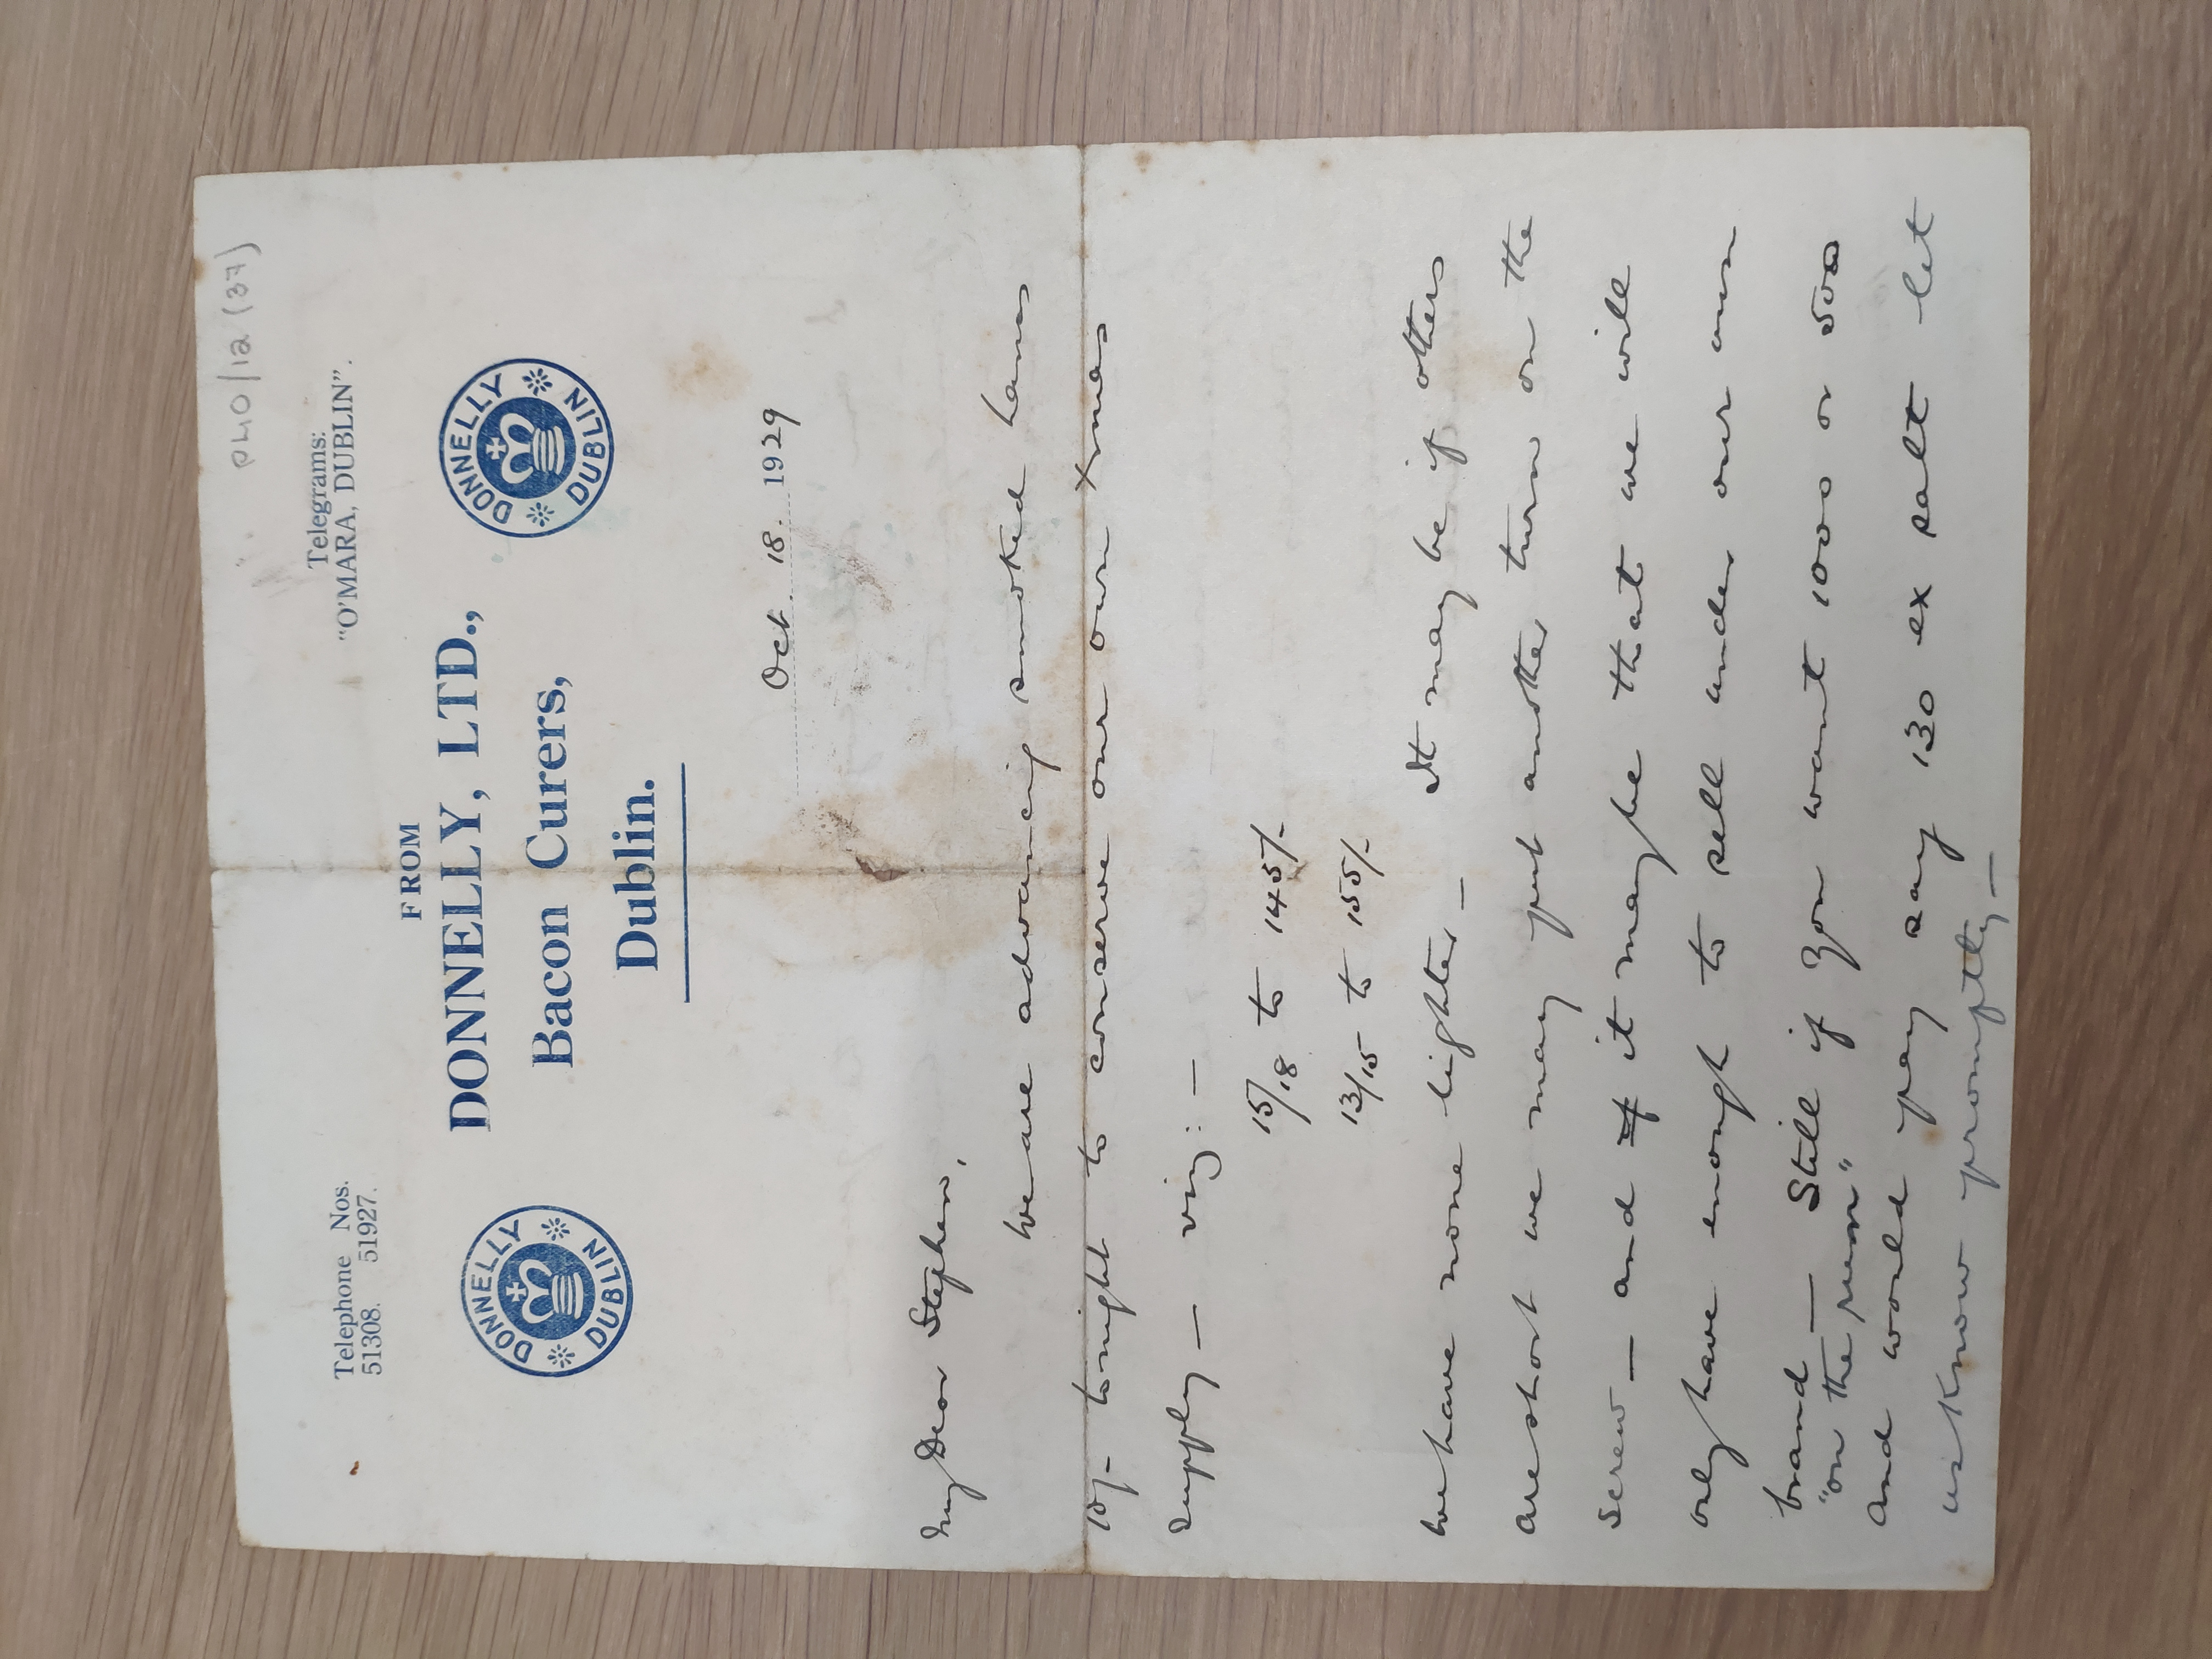 PHO/12 (37)
Telephone Nos.
51308. 51927.
Telegrams:
"O'MARA, DUBLIN".
FROM
DONNELLY, LTD.,
Bacon Curers,
Dublin.
DONNELLY
DUBLIN
DONNELLY
DUBLIN
Oct. 18. 1929
My Dear Stephen,
We are advancing smoked hams
10/- tonight to conserve our own Xmas
supply — viz: —
15/18 to 145/-
13/15 to 155/-
We have none lighter — It may be if others
are short we may put another turn on the
screw — and if it may be that we will
only have enough to sell under our own
brand — Still if you want 1000 or 500
"on the
and would pay say 130 ex salt let
us know promptly —